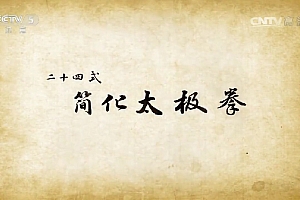 CCTV 5
CNTV
二十四式
简化太极拳